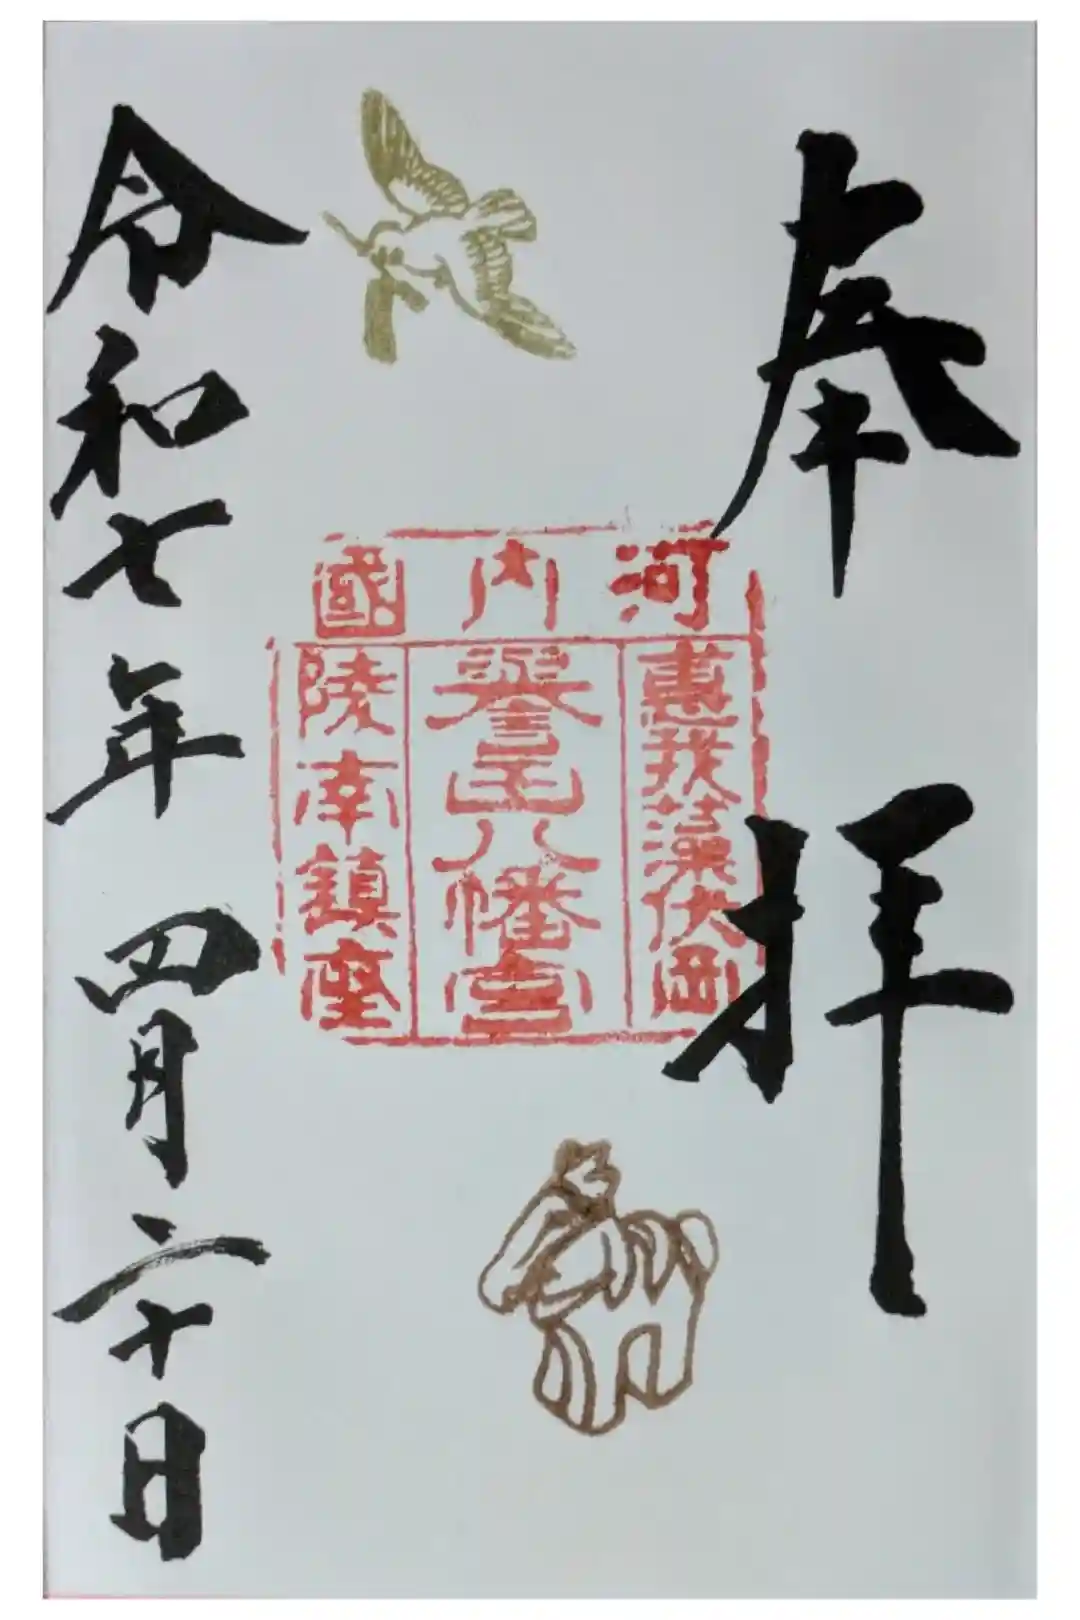 奉拝
河内國
惠我藻伏岡
譽田八幡宮
陵南鎮座
令和七年四月二十日